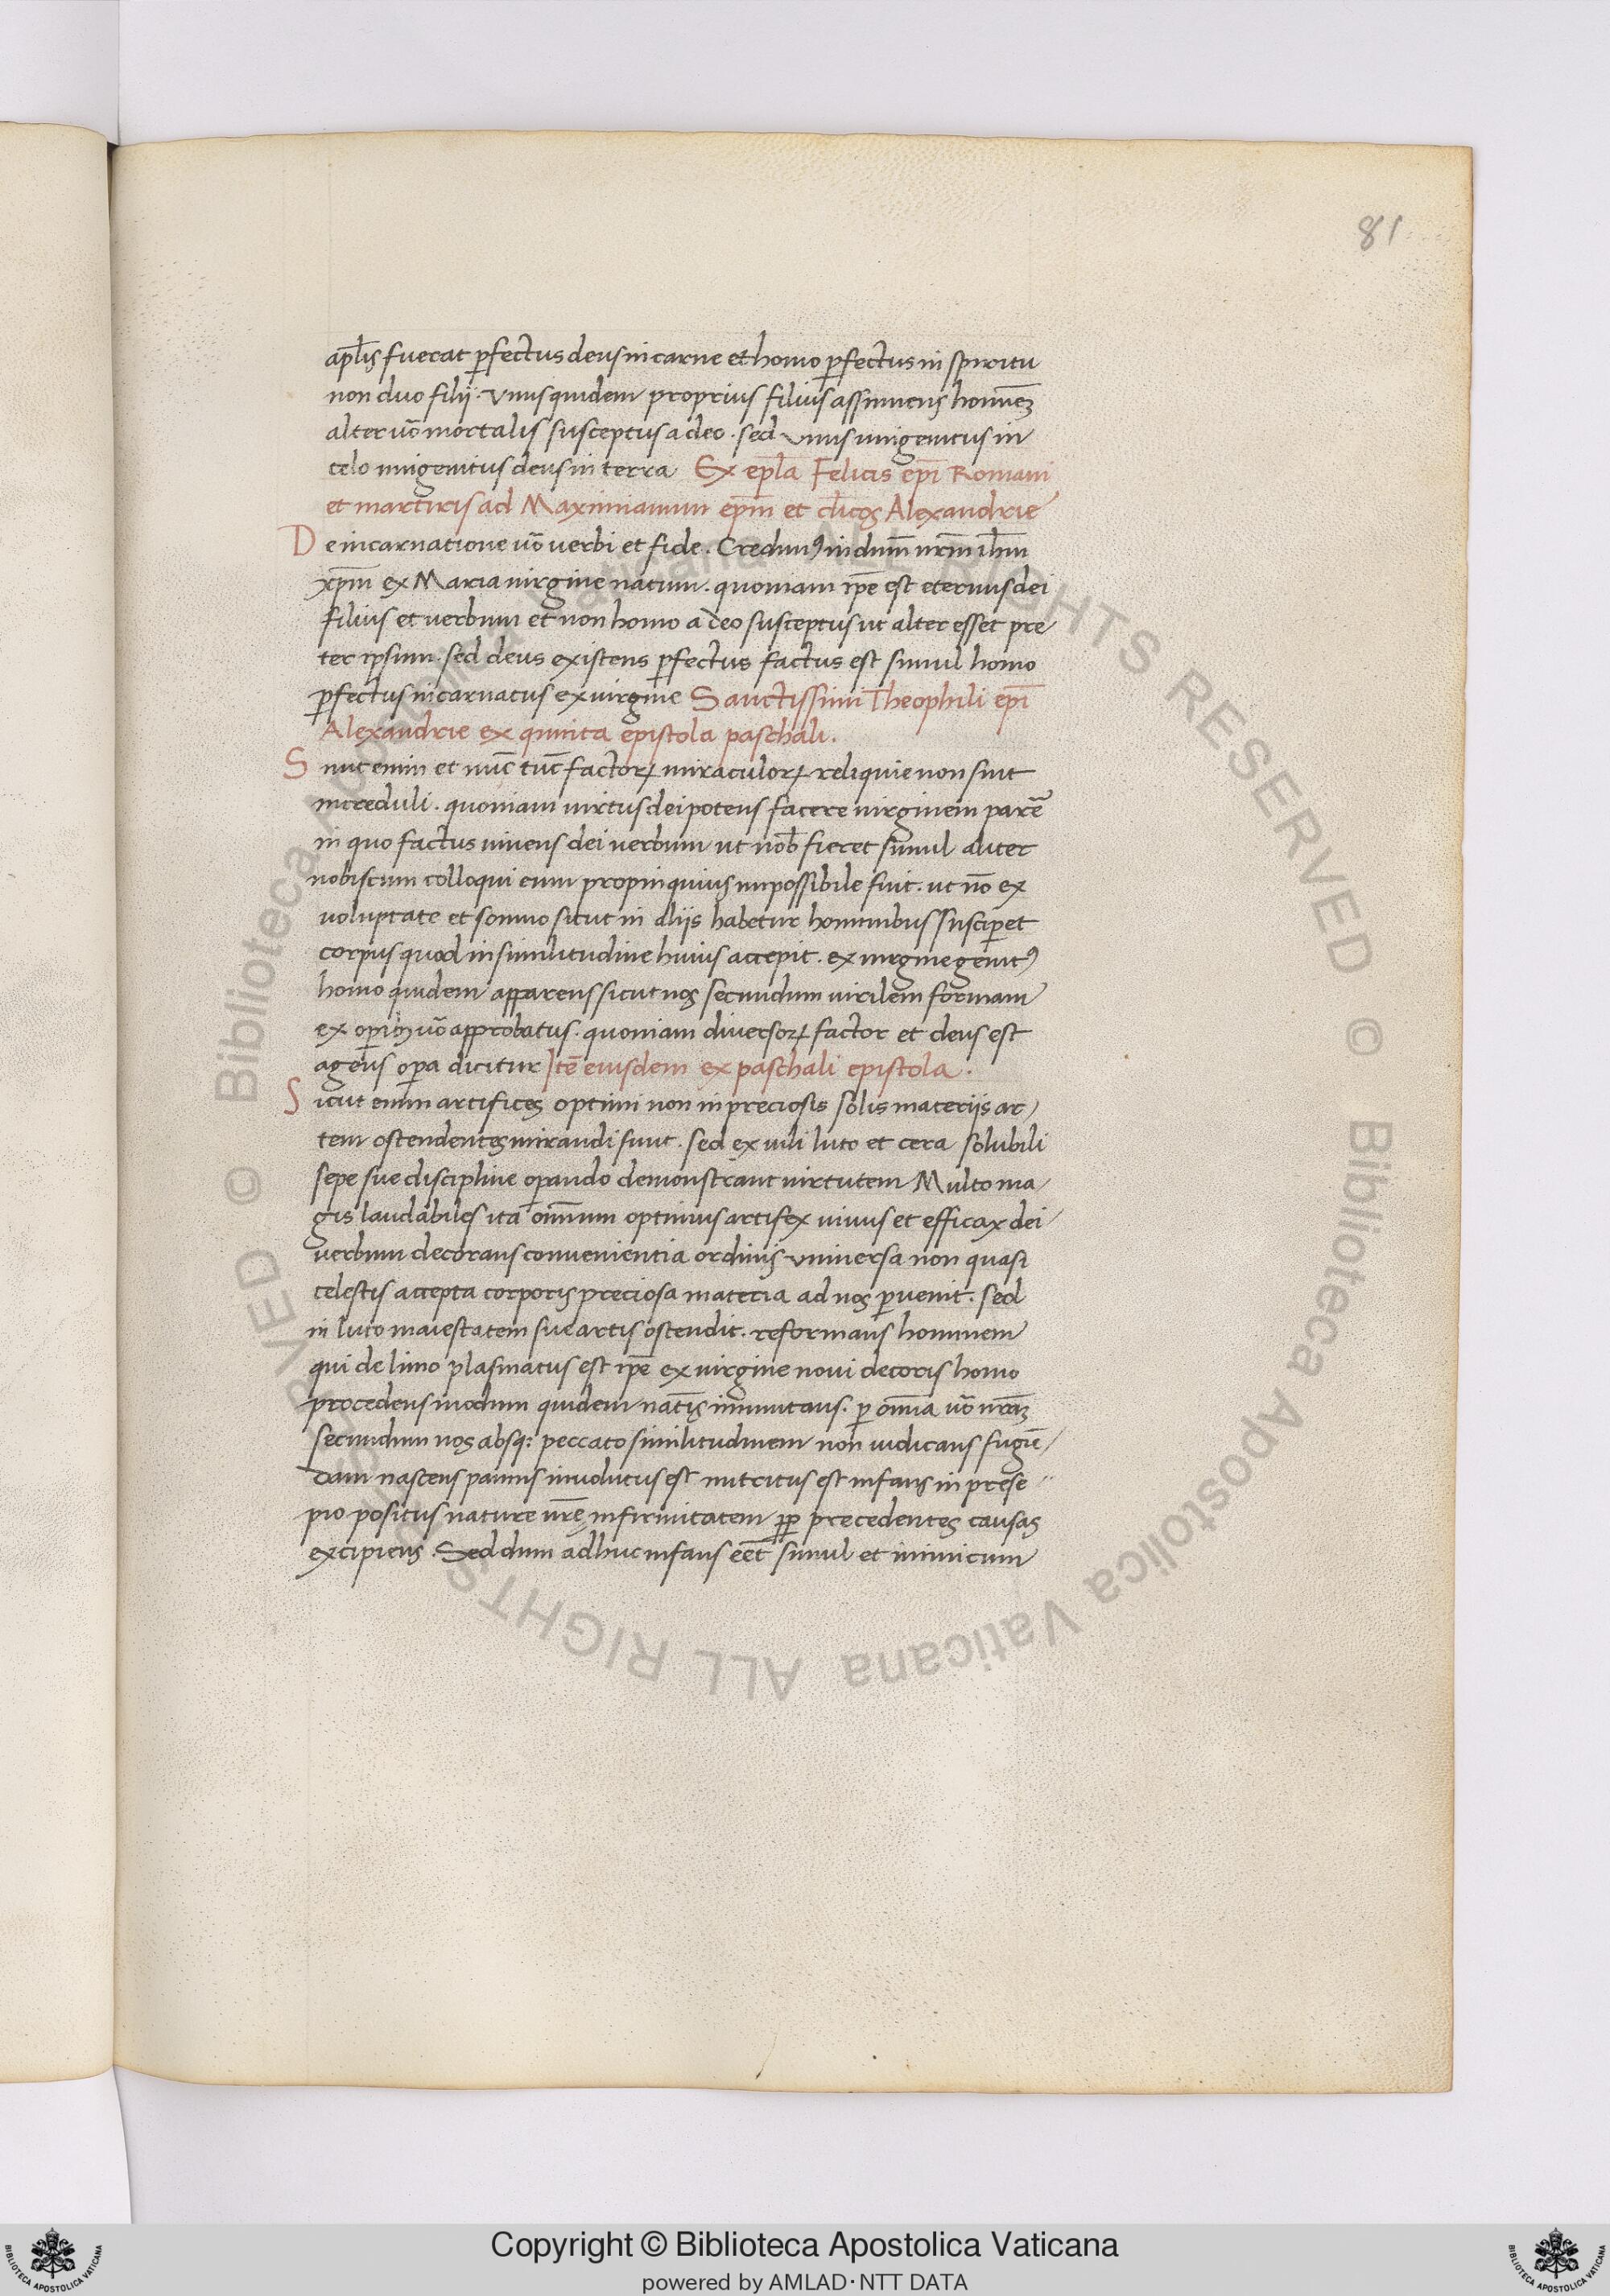 81
apl̅is fuerat ꝑfectus deus in carne et homo ꝑfectus in spiritu
non duo filij. Unus quidem proprius filius assumens homine̅
alter uo̅ mortalis susceptus a deo. sed unus unigenitus in
celo unigenitus deus in terra Ex epl̅a Felicis epi̅ Romani
et martiris ad Maximianum epm̅ et cl̅icos Alexandrie
De incarnatione uo̅ verbi et fide. Credimꝰ in dnm̅ nrm̅ ihm̅
xpm̅ ex Maria virgine natum. quoniam ip̅e est eternus dei
filius et verbum et non homo a deo susceptus ut alter esset pre
ter ipsum. sed deus existens ꝑfectus factus est simul homo
ꝑfectus incarnatus ex virgine Sanctissimi Theophili epi̅
Alexandrie ex quinta epistola paschali.
Sunt enim et nu̅c tu̅c factoꝝ miraculoꝝ reliquie non sint
increduli. quoniam virtus dei potens facere virginem pare̅
in quo factus vivens dei verbum ut nob̅ fieret simul aliter
nobiscum colloqui eum propinquius impossibile fuit. ut no̅ ex
voluptate et somno sicut in aliis habetur hominibus susciꝑet
corpus quod in similitudine huius accepit. ex virgine genitꝰ
homo quidem apparens sicut nos secundum virilem formam
ex oꝑibꝫ uo̅ approbatus. quoniam diversoꝝ factor et deus est
agens oꝑa dicitur Ite̅ eiusdem ex paschali epistola.
Sicut enim artifices optimi non in preciosis solis materiis ar
tem ostendentes mirandi sunt. sed ex vili luto et cera solubili
sepe sue discipline oꝑando demonstrant virtutem Multo ma
gis laudabiles ita om̅ium optimus artifex vivus et efficax dei
verbum decorans convenientia ordinis universa non quasi
celestis accepta corporis preciosa materia ad nos ꝑvenit. sed
in luto maiestatem sue artis ostendit. reformans hominem
qui de limo plasmatus est ip̅e ex virgine novi decoris homo
procedens modum quidem nat̅is immutans. ꝑ omnia uo̅ nra̅m
secundum nos absqꝫ peccato similitudinem non iudicans fugie̅
dam nascens pannis involutus est nutritus est infans in prese
pio positus nature nr̅e infirmitatem ꝓꝑ precedentes causas
excipiens. Sed dum adhuc infans ee̅t simul et inimicum
© Biblioteca Apostolica Vaticana ALL RIGHTS RESERVED
© Biblioteca Apostolica Vaticana ALL RIGHTS RESERVED
Copyright © Biblioteca Apostolica Vaticana
powered by AMLAD·NTT DATA
BIBLIOTECA APOSTOLICA VATICANA
BIBLIOTECA APOSTOLICA VATICANA